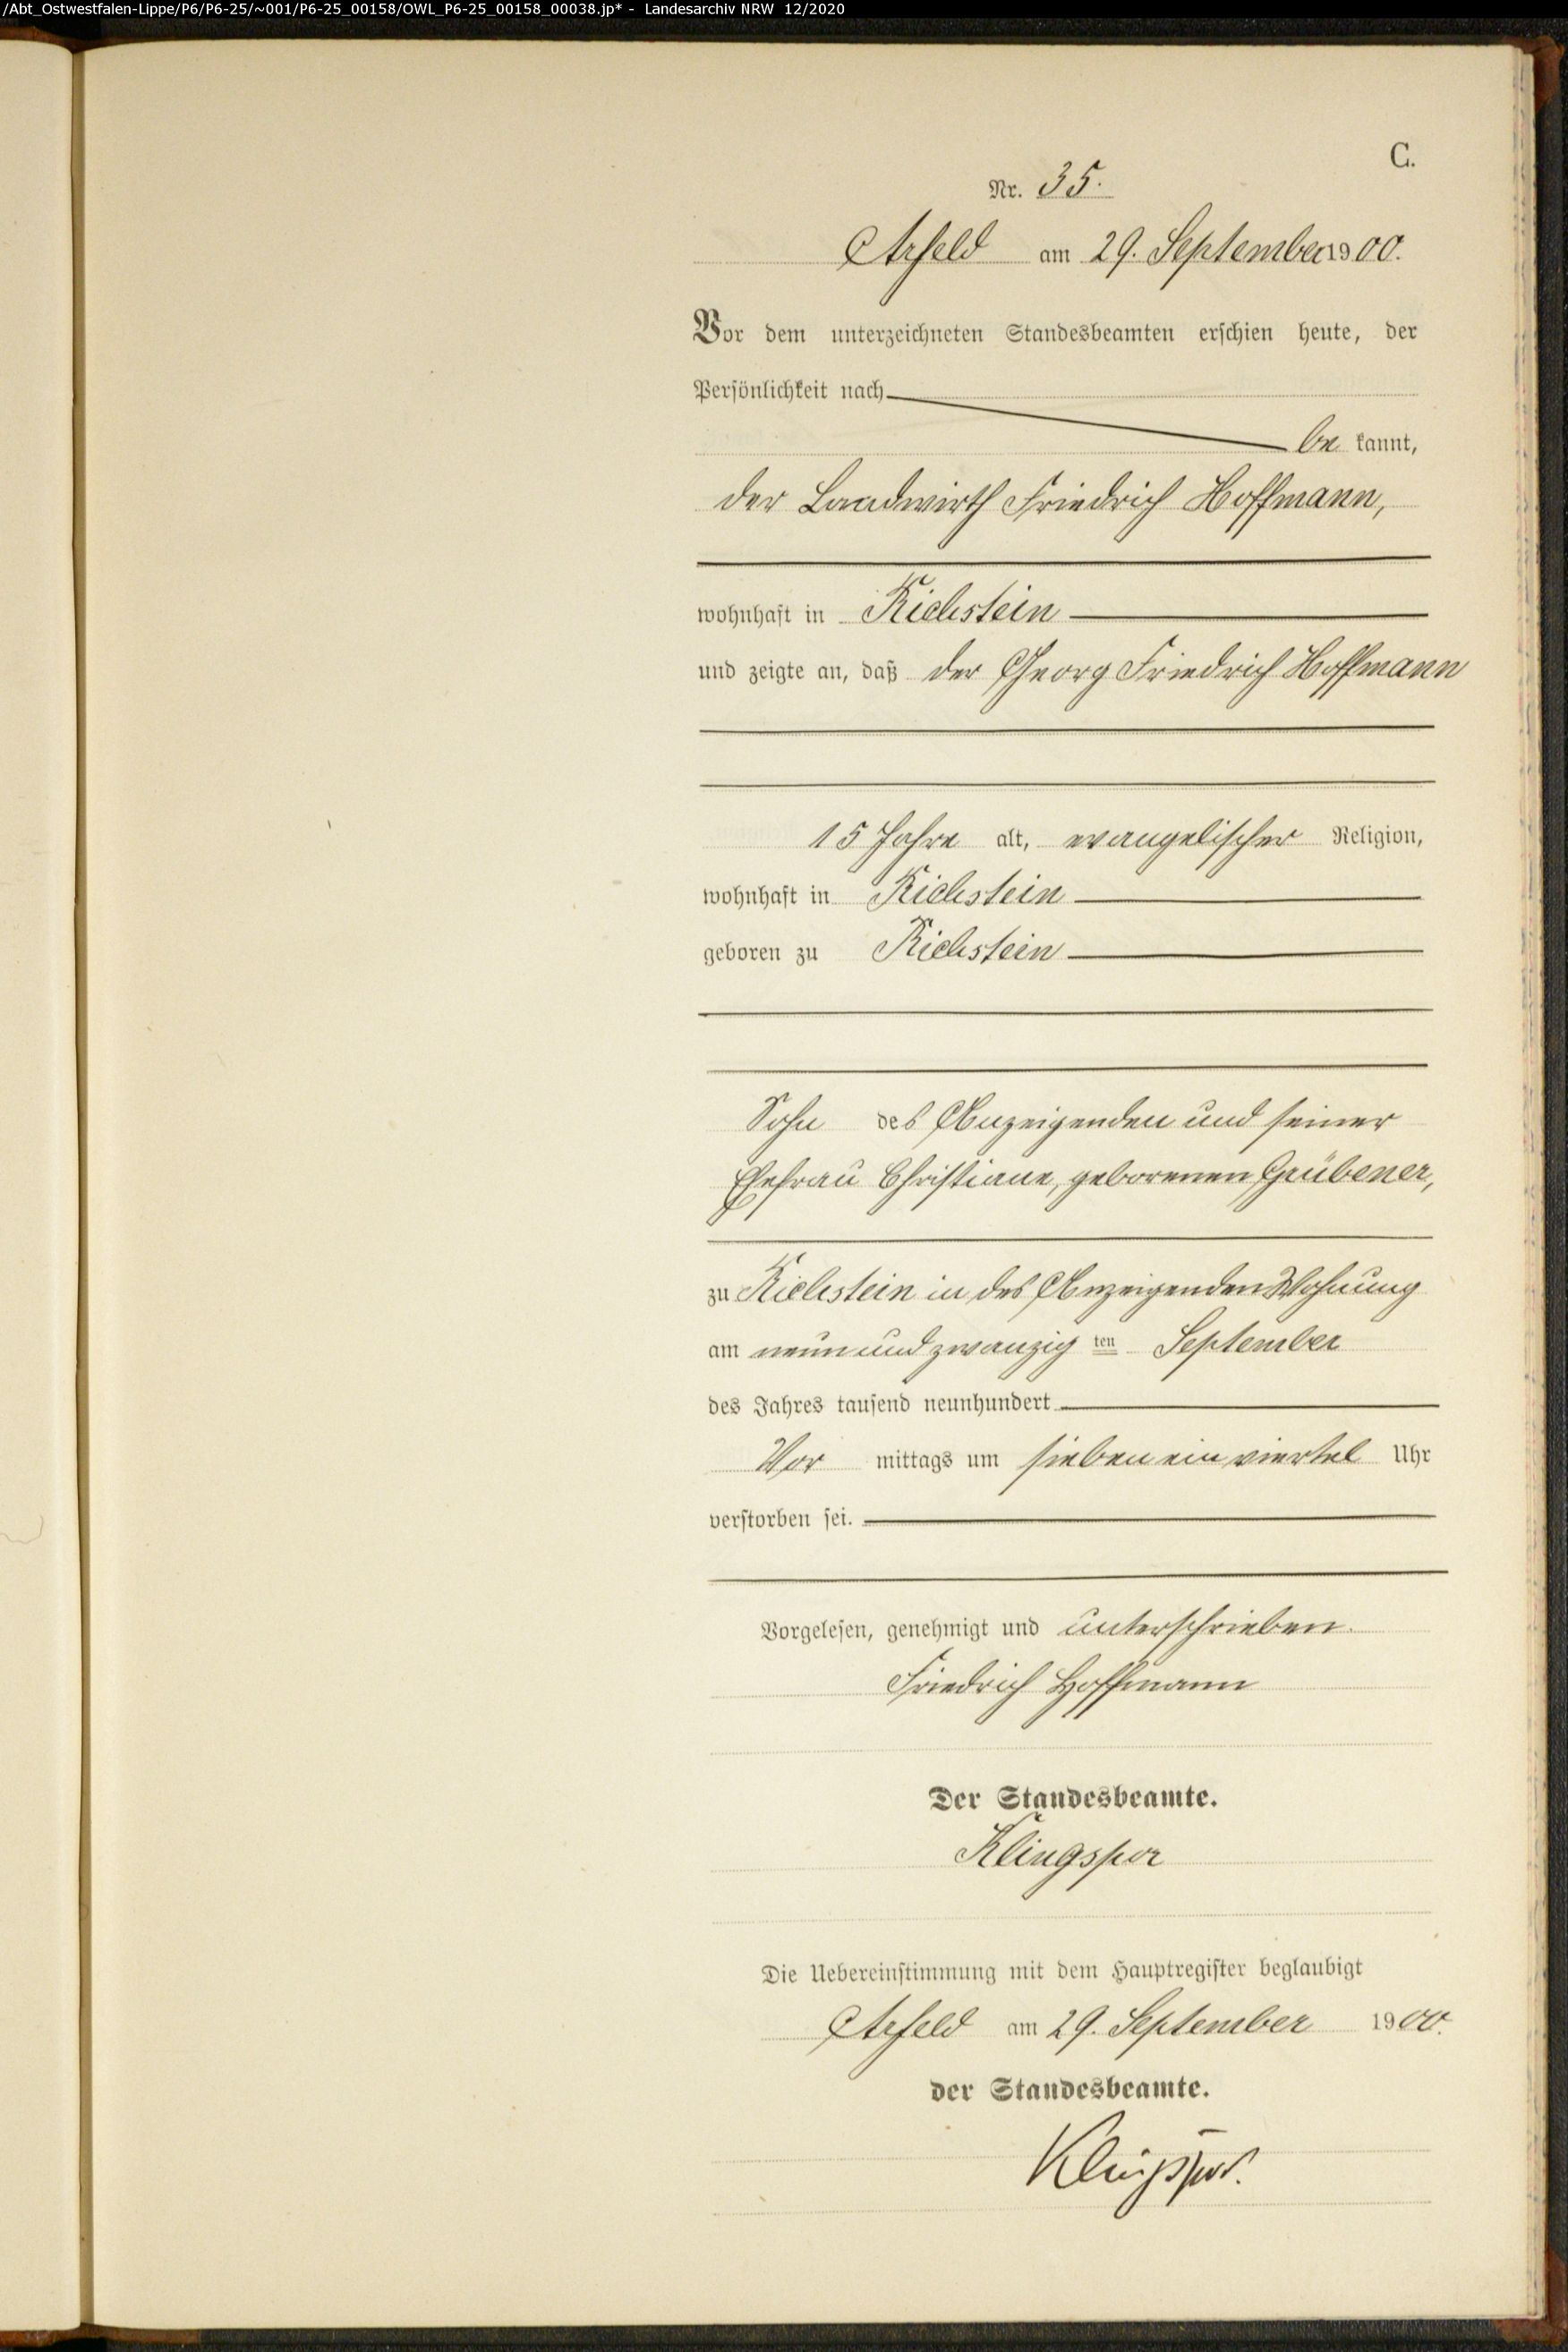 /Abt_Ostwestfalen-Lippe/P6/P6-25/~001/P6-25_00158/OWL_P6-25_00158_00038.jp* - Landesarchiv NRW 12/2020
C.
Nr. 35.
Arfeld am 29. September 1900.
Vor dem unterzeichneten Standesbeamten erschien heute, der
Persönlichkeit nach
be kannt,
der Landwirth Friedrich Hoffmann,
wohnhaft in Richstein
und zeigte an, daß der Georg Friedrich Hoffmann
15 Jahre alt, evangelischer Religion,
wohnhaft in Richstein
geboren zu Richstein
Sohn des Anzeigenden und seiner
Ehefrau Christiane, geborenen Grübener,
zu Richstein in des Anzeigenden Wohnung
am neunundzwanzig ten September
des Jahres tausend neunhundert
Vor mittags um sieben ein viertel Uhr
verstorben sei.
Vorgelesen, genehmigt und unterschrieben.
Friedrich Hoffmann
Der Standesbeamte.
Klingspor
Die Uebereinstimmung mit dem Hauptregister beglaubigt
Arfeld am 29. September 1900.
der Standesbeamte.
Klingspor.